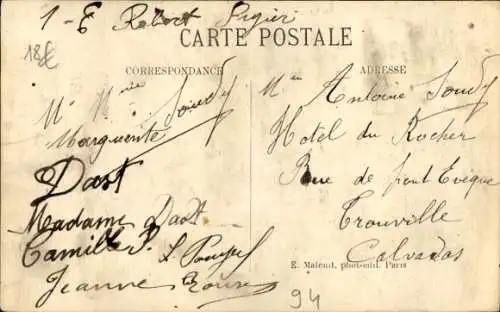 1 - E Robert
18€
CARTE POSTALE
CORRESPONDANCE
ADRESSE
Marguerite
Dast
Madame Dast
Camille P.
Jeanne
Mr Antoine Soudy
Hotel du Rocher
Rue de pont Eveque
Trouville
Calvados
E. Malcuit, phot-édit. Paris
94